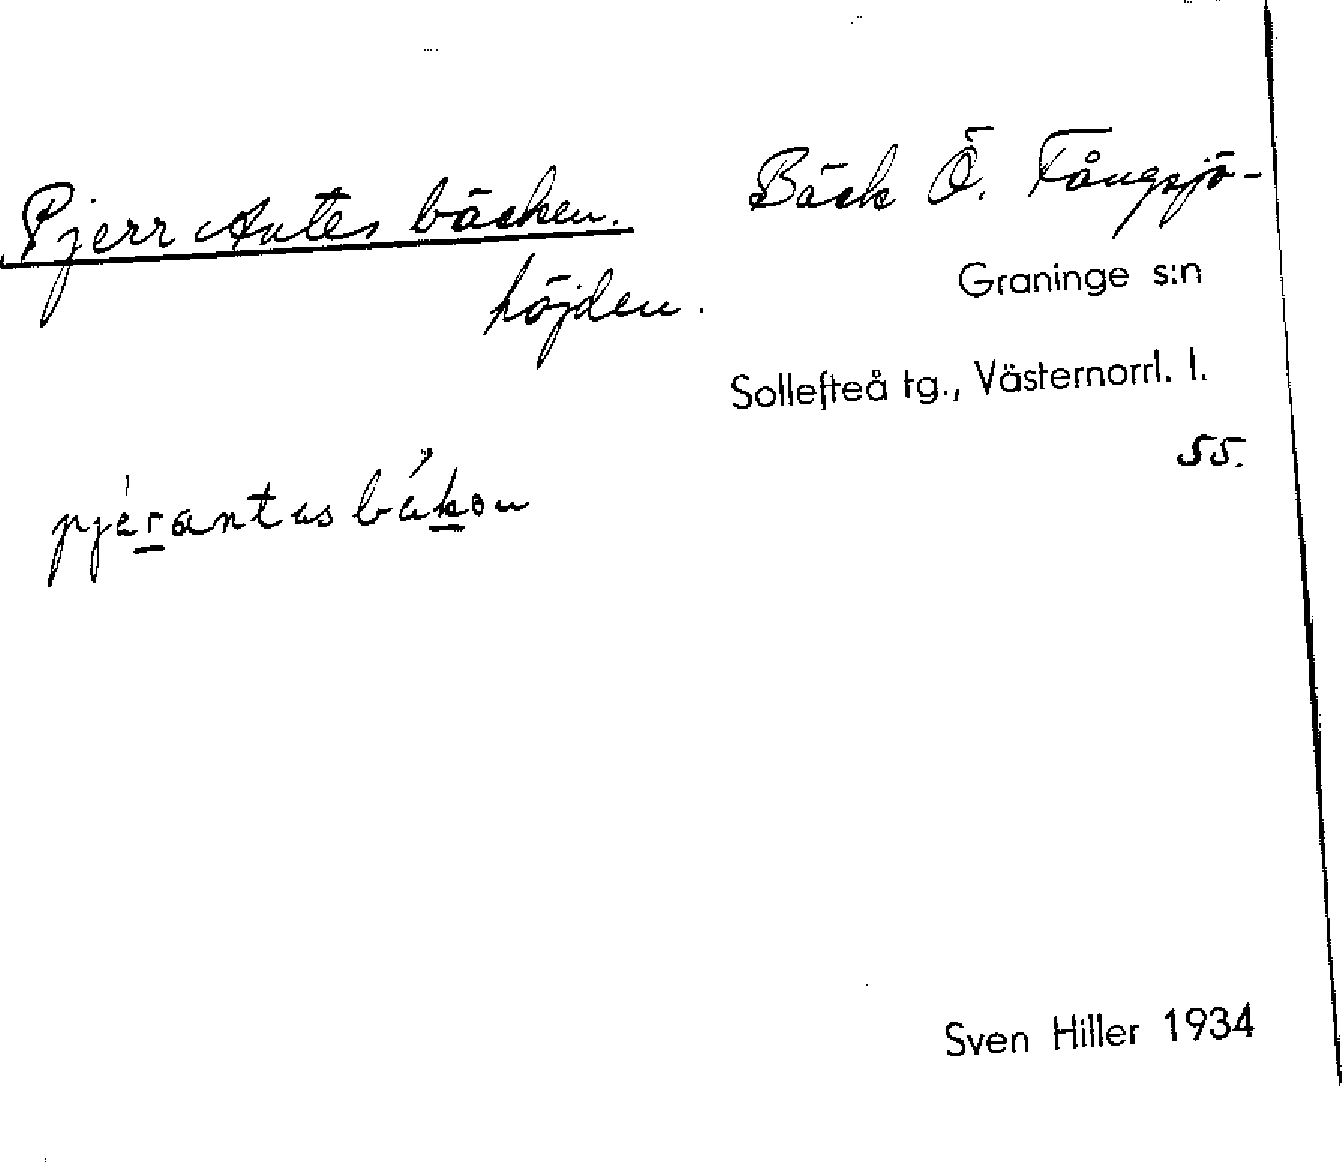 Pjerr Antes bäcken. Bäck Ö. Tångsjö-
höjden.
Graninge s:n
Sollefteå tg., Västernorrl. l.
55.
pjerantas bäkən
Sven Hiller 1934